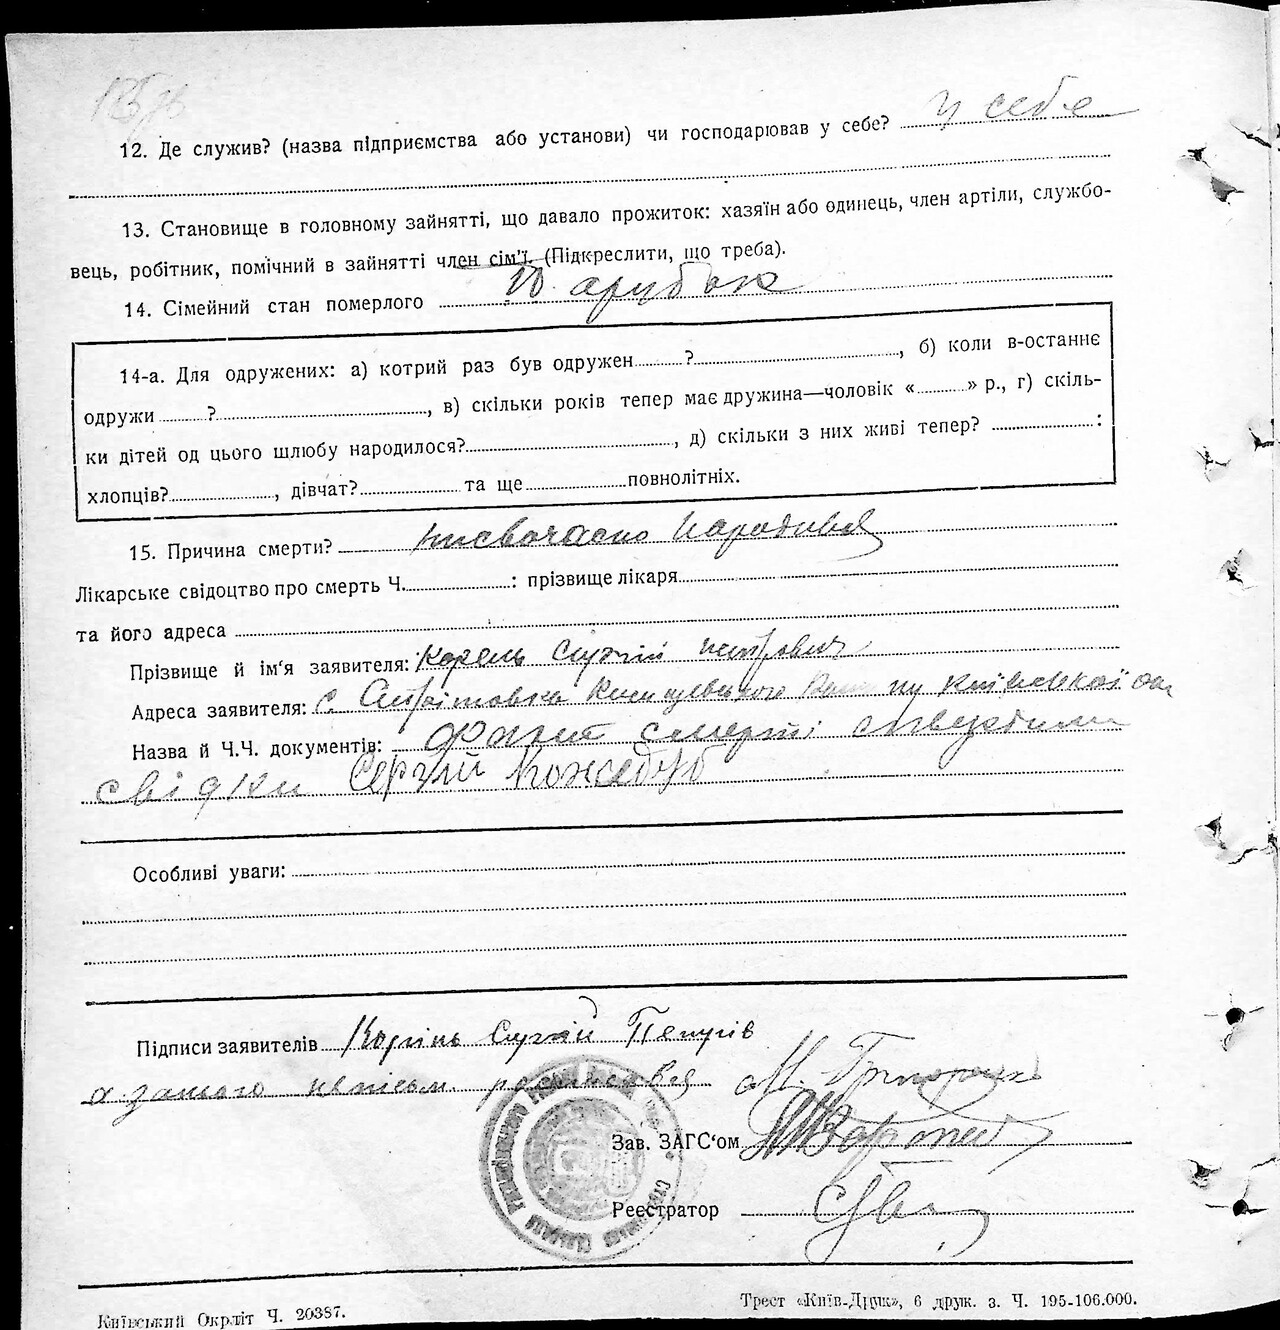 12. Де служив? (назва підприємства або установи) чи господарював у себе? у себе
13. Становище в головному зайнятті, що давало прожиток: хазяїн або одинець, член артілі, службо-
вець, робітник, помічний в зайнятті член сім'ї. (Підкреслити, що треба).
14. Сімейний стан померлого
14-а. Для одружених: а) котрий раз був одружен ? , б) коли в-останнє
одружи ? , в) скільки років тепер має дружина—чоловік « » р., г) скіль-
ки дітей од цього шлюбу народилося? , д) скільки з них живі тепер? :
хлопців? , дівчат? та ще повнолітніх.
15. Причина смерти? Народився
Лікарське свідоцтво про смерть Ч. : прізвище лікаря
та його адреса
Прізвище й ім'я заявителя: Корень Сергій Петрович
Адреса заявителя: с.
Назва й Ч.Ч. документів: Факт смерті
свідки Сергій Кожедуб
Особливі уваги:
Підписи заявителів Корінь Сергій
а за його
Зав. ЗАГС'ом
Реєстратор
Київський Окрліт Ч. 20387.
Трест «Київ-Друк», 6 друк. з. Ч. 195-106.000.